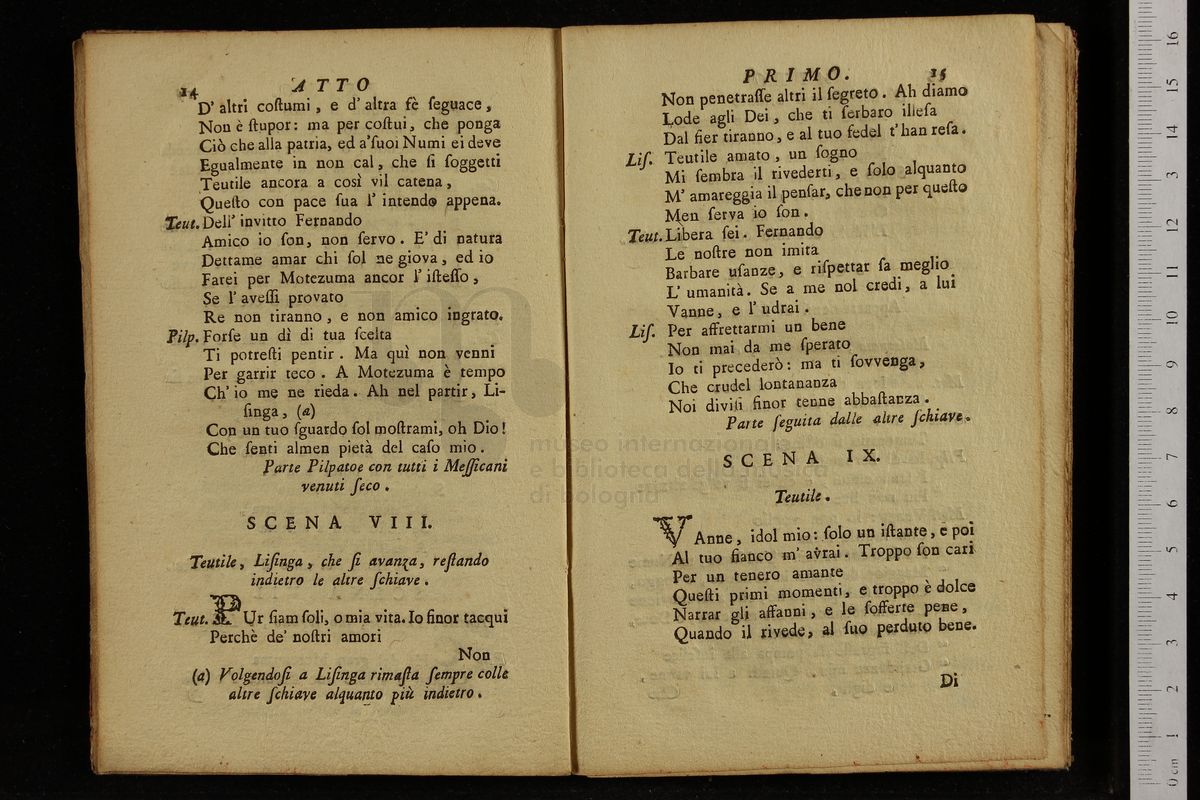 14 ATTO
D' altri coſtumi, e d' altra fè ſeguace,
Non è ſtupor: ma per coſtui, che ponga
Ciò che alla patria, ed a'ſuoi Numi ei deve
Egualmente in non cal, che ſi ſoggetti
Teutile ancora a così vil catena,
Queſto con pace ſua l' intendo appena.
Teut. Dell' invitto Fernando
Amico io ſon, non ſervo. E' di natura
Dettame amar chi ſol ne giova, ed io
Farei per Motezuma ancor l' iſteſſo,
Se l' aveſſi provato
Re non tiranno, e non amico ingrato.
Pilp. Forſe un dì di tua ſcelta
Ti potreſti pentir. Ma quì non venni
Per garrir teco. A Motezuma è tempo
Ch' io me ne rieda. Ah nel partir, Li-
ſinga, (a)
Con un tuo ſguardo ſol moſtrami, oh Dio!
Che ſenti almen pietà del caſo mio.
Parte Pilpatoe con tutti i Meſſicani
venuti ſeco.
SCENA VIII.
Teutile, Liſinga, che ſi avanza, reſtando
indietro le altre ſchiave.
Teut. PUr ſiam ſoli, o mia vita. Io finor tacqui
Perchè de' noſtri amori
Non
(a) Volgendoſi a Liſinga rimaſta ſempre colle
altre ſchiave alquanto più indietro.
PRIMO. 15
Non penetraſſe altri il ſegreto. Ah diamo
Lode agli Dei, che ti ſerbaro illeſa
Dal fier tiranno, e al tuo fedel t' han reſa.
Liſ. Teutile amato, un ſogno
Mi ſembra il rivederti, e ſolo alquanto
M' amareggia il penſar, che non per queſto
Men ſerva io ſon.
Teut. Libera ſei. Fernando
Le noſtre non imita
Barbare uſanze, e riſpettar ſa meglio
L' umanità. Se a me nol credi, a lui
Vanne, e l' udrai.
Liſ. Per affrettarmi un bene
Non mai da me ſperato
Io ti precederò: ma ti ſovvenga,
Che crudel lontananza
Noi diviſi finor tenne abbaſtanza.
Parte ſeguita dalle altre ſchiave.
SCENA IX.
Teutile.
VAnne, idol mio: ſolo un iſtante, e poi
Al tuo fianco m' avrai. Troppo ſon cari
Per un tenero amante
Queſti primi momenti, e troppo è dolce
Narrar gli affanni, e le ſofferte pene,
Quando il rivede, al ſuo perduto bene.
Di
museo internazionale
e biblioteca della musica
di bologna
0 cm 1 2 3 4 5 6 7 8 9 10 11 12 13 14 15 16